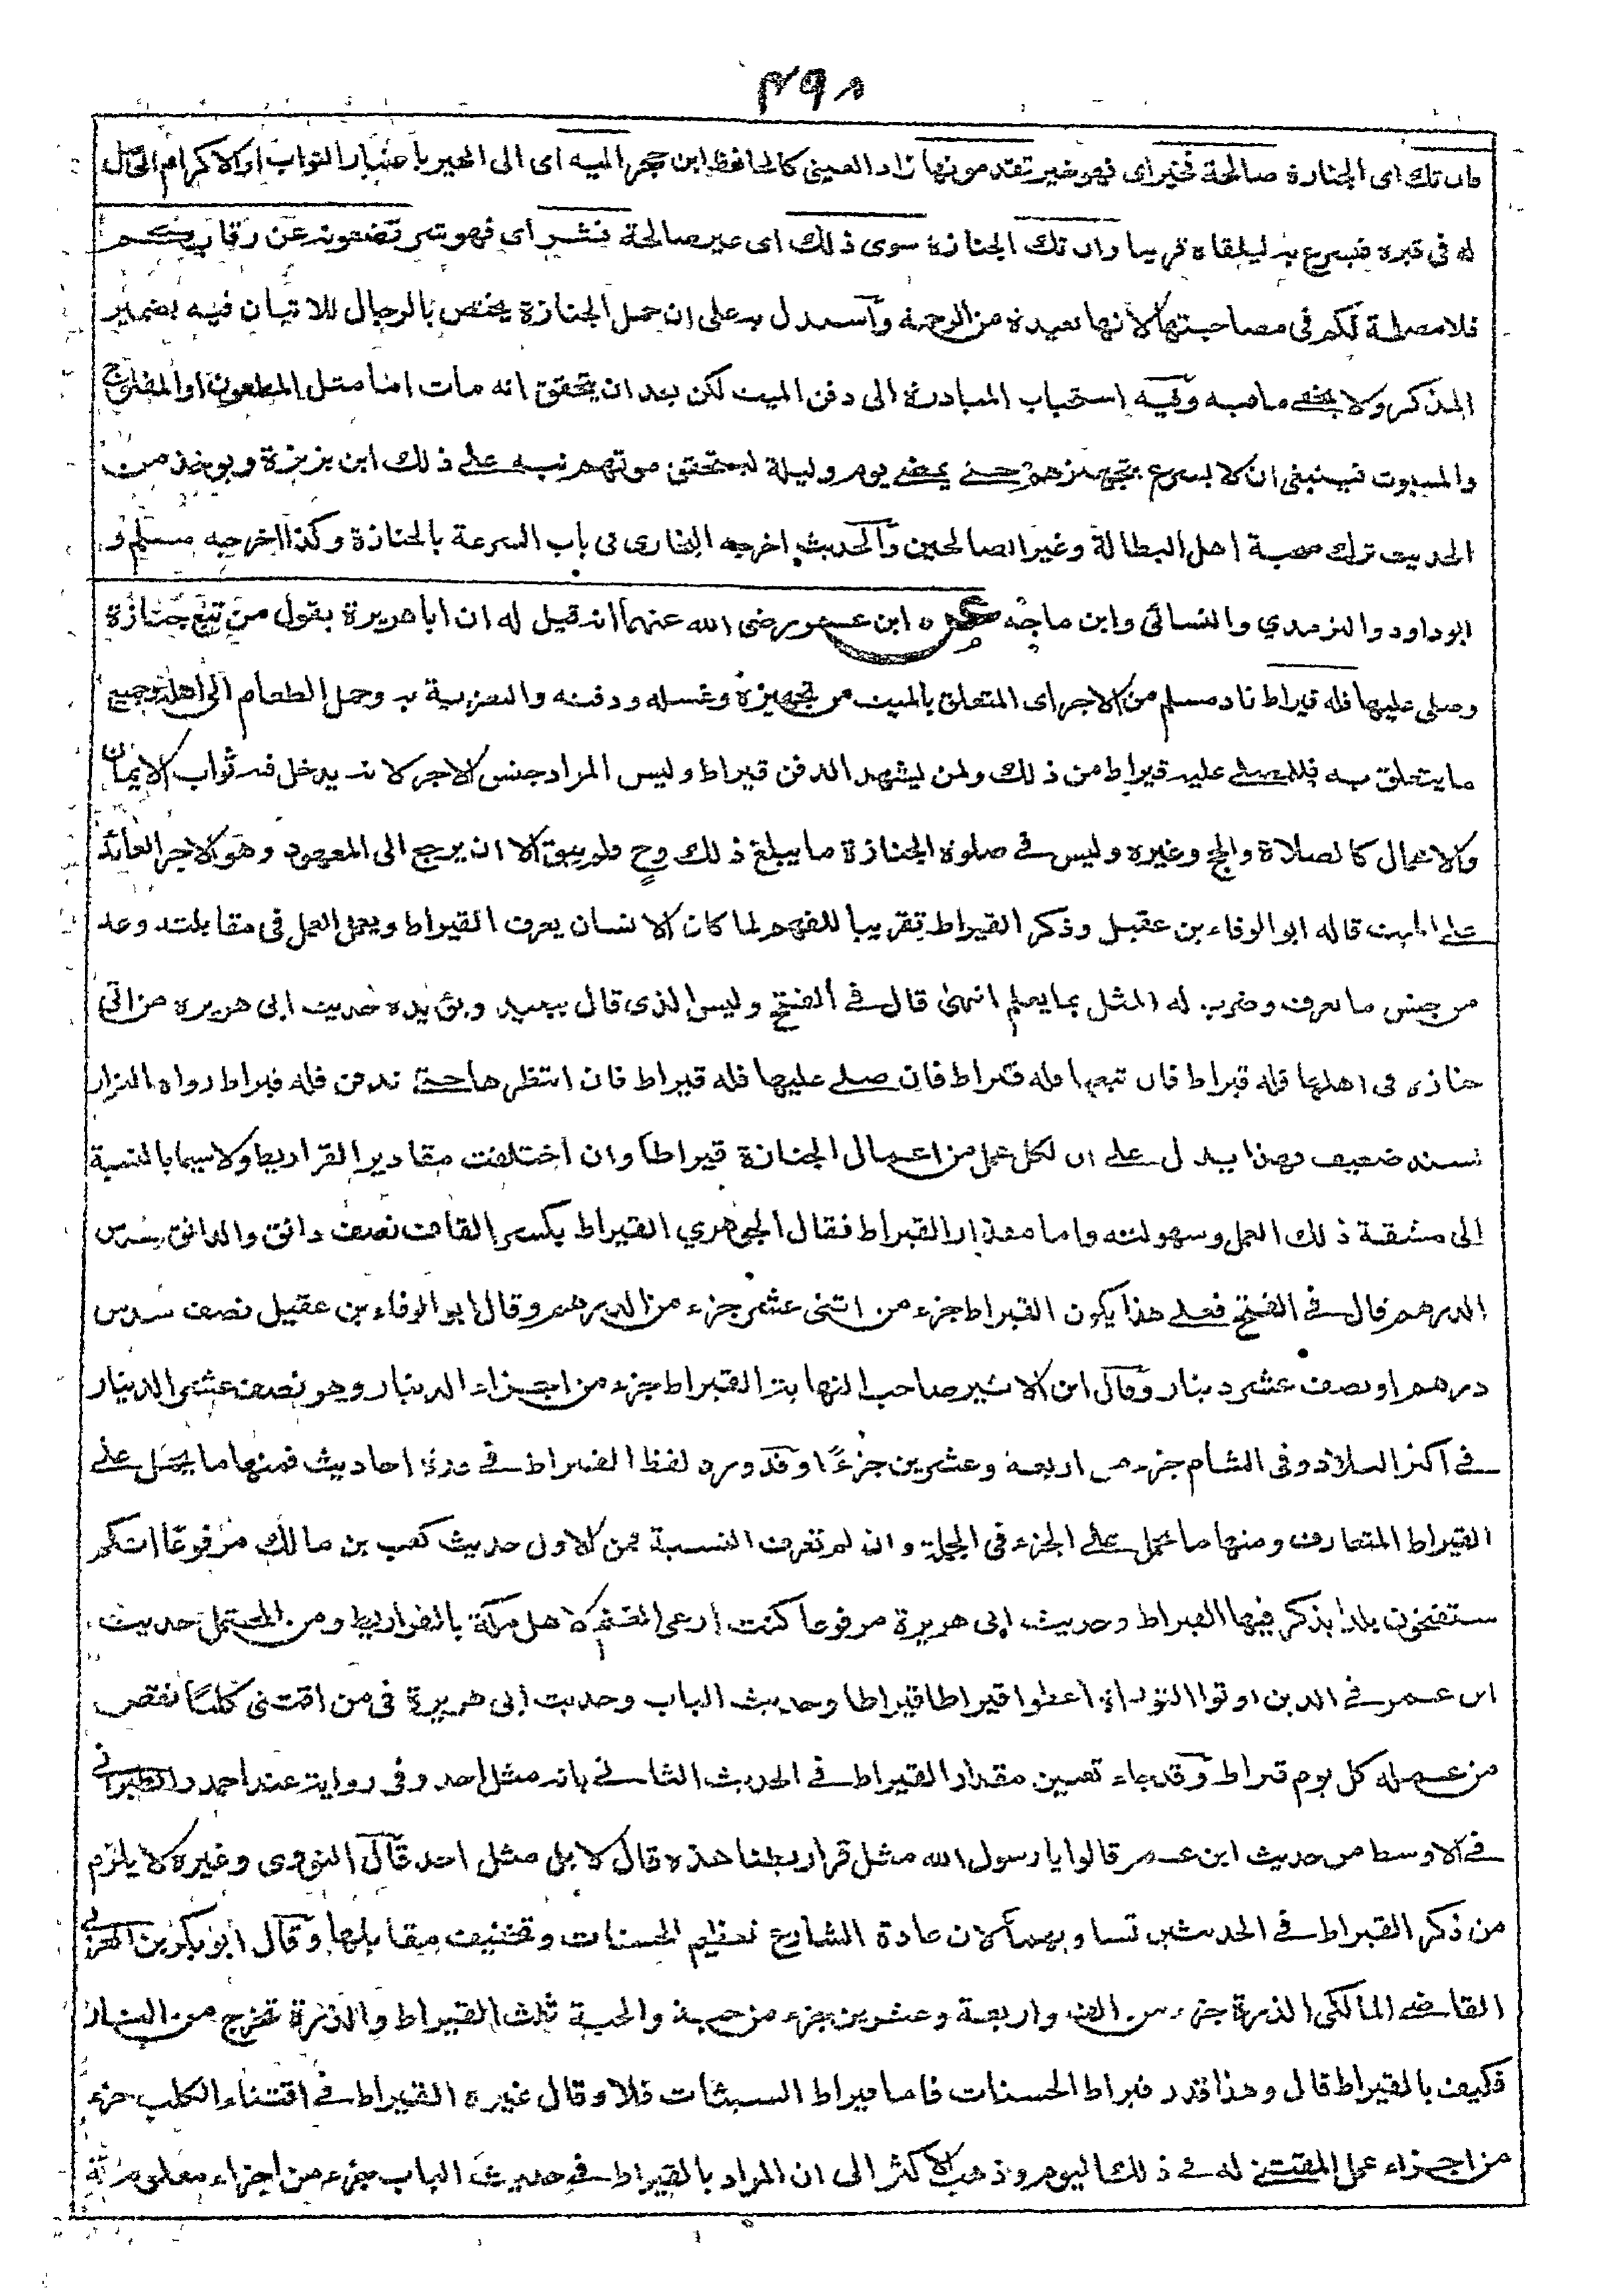 ٤٩٨
فان تك اى الجنازة صالحة فخير اى فهو خير تقدمونها زاد العينى كالحافظ ابن حجر اليه اى الى الخير باعتبار الثواب او الاكرام الحاصل
له فى قبره فيسرع به ليلقاه قريبا وان تك الجنازة سوى ذلك اى غير صالحة فشر اى فهو شر تضعونه عن رقابكم
فلا مصلحة لكم فى مصاحبتها لانها بعيدة من الرحمة واستدل به على ان حمل الجنازة يختص بالرجال للاتيان فيه بضمير
المذكر ولا يخفى ما فيه وفيه استحباب المبادرة الى دفن الميت لكن بعد ان يتحقق انه مات اما مثل المطعون او المفلوج
والمسبوت فينبغى ان لا يسرع بتجهيزهم حتى يمضى يوم وليلة ليتحقق موتهم نبه على ذلك ابن بزيزة ويوخذ من
الحديث ترك صحبة اهل البطالة وغير الصالحين والحديث اخرجه البخارى فى باب السرعة بالجنازة وكذا اخرجه مسلم و
ابو داود والترمذي والنسائى وابن ماجه ابن عمر رضى الله عنهما انه قيل له ان ابا هريرة يقول من تبع جنازة
وصلى عليها فله قيراط زاد مسلم من الاجر اى المتعلق بالميت من تجهيزه وغسله ودفنه والتعزية به وحمل الطعام الى اهله وجميع
ما يتعلق به فللمصلى عليه قيراط من ذلك ولمن يشهد الدفن قيراط وليس المراد جنس الاجر لانه يدخل فيه ثواب الايمان
والاعمال كالصلاة والحج وغيره وليس فى صلوة الجنازة ما يبلغ ذلك وح فلم يبق الا ان يرجع الى المعهود وهو الاجر العائد
على الميت قاله ابو الوفاء بن عقيل وذكر القيراط تقريبا للفهم لما كان الانسان يعرف القيراط ويعمل العمل فى مقابلته وعد
من جنس ما يعرف وضرب له المثل بما يعلم انتهى قال فى الفتح وليس الذى قال ببعيد ويؤيده حديث ابى هريرة من اتى
جنازة فى اهلها فله قيراط فان تبعها فله قيراط فان صلى عليها فله قيراط فان انتظرها حتى تدفن فله قيراط رواه البزار
بسند ضعيف فهذا يدل على ان لكل عمل من اعمال الجنازة قيراطا وان اختلفت مقادير القراريط ولا سيما بالنسبة
الى مشقة ذلك العمل وسهولته واما مقدار القيراط فقال الجوهري القيراط بكسر القاف نصف دانق والدانق سدس
الدرهم قال فى الفتح فعلى هذا يكون القيراط جزء من اثنى عشر جزء من الدرهم وقال ابو الوفاء بن عقيل نصف سدس
درهم او نصف عشر دينار وقال ابن الاثير صاحب النهاية القيراط جزء من اجزاء الدينار وهو نصف عشر الدينار
فى اكثر البلاد وفى الشام جزء من اربعة وعشرين جزءًا وقد ورد لفظ القيراط فى عدة احاديث فمنها ما يحمل على
القيراط المتعارف ومنها ما يحمل على الجزء فى الجملة وان لم تعرف النسبة فمن الاول حديث كعب بن مالك مرفوعًا انكم
ستفتحون بلدا يذكر فيها القيراط وحديث ابى هريرة مرفوعا كنت ارعى الغنم لاهل مكة بالقراريط ومن المحتمل حديث
ابن عمر فى الذين اوتوا التوراة اعطوا قيراطا قيراطا وحديث الباب وحديث ابى هريرة فى من اقتنى كلبًا نقص
من عمله كل يوم قيراط وقد جاء تعيين مقدار القيراط فى الحديث الثانى بانه مثل احد وفى رواية عند احمد والطبرانى
فى الاوسط من حديث ابن عمر قالوا يا رسول الله مثل قراريطنا هذه قال لا بل مثل احد قال النووى وغيره لا يلزم
من ذكر القيراط فى الحديثين تساويهما لان عادة الشارع تعظيم الحسنات وتخفيف مقابلها وقال ابو بكر بن العربى
القاضى المالكى الذرة جزء من الف واربعة وعشرين جزء من حبة والحبة ثلث القيراط والذرة تخرج من النار
فكيف بالقيراط قال وهذا قدر قيراط الحسنات فاما قيراط السيئات فلا وقال غيره القيراط فى اقتناء الكلب جزء
من اجزاء عمل المقتنى له فى ذلك اليوم وذهب الاكثر الى ان المراد بالقيراط فى حديث الباب جزء من اجزاء معلومة